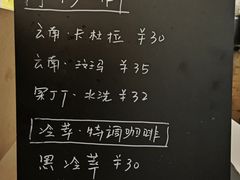 云南·卡杜拉 ¥30
云南· ¥35
水洗 ¥32
冷萃·特调咖啡
黑冷萃 ¥30